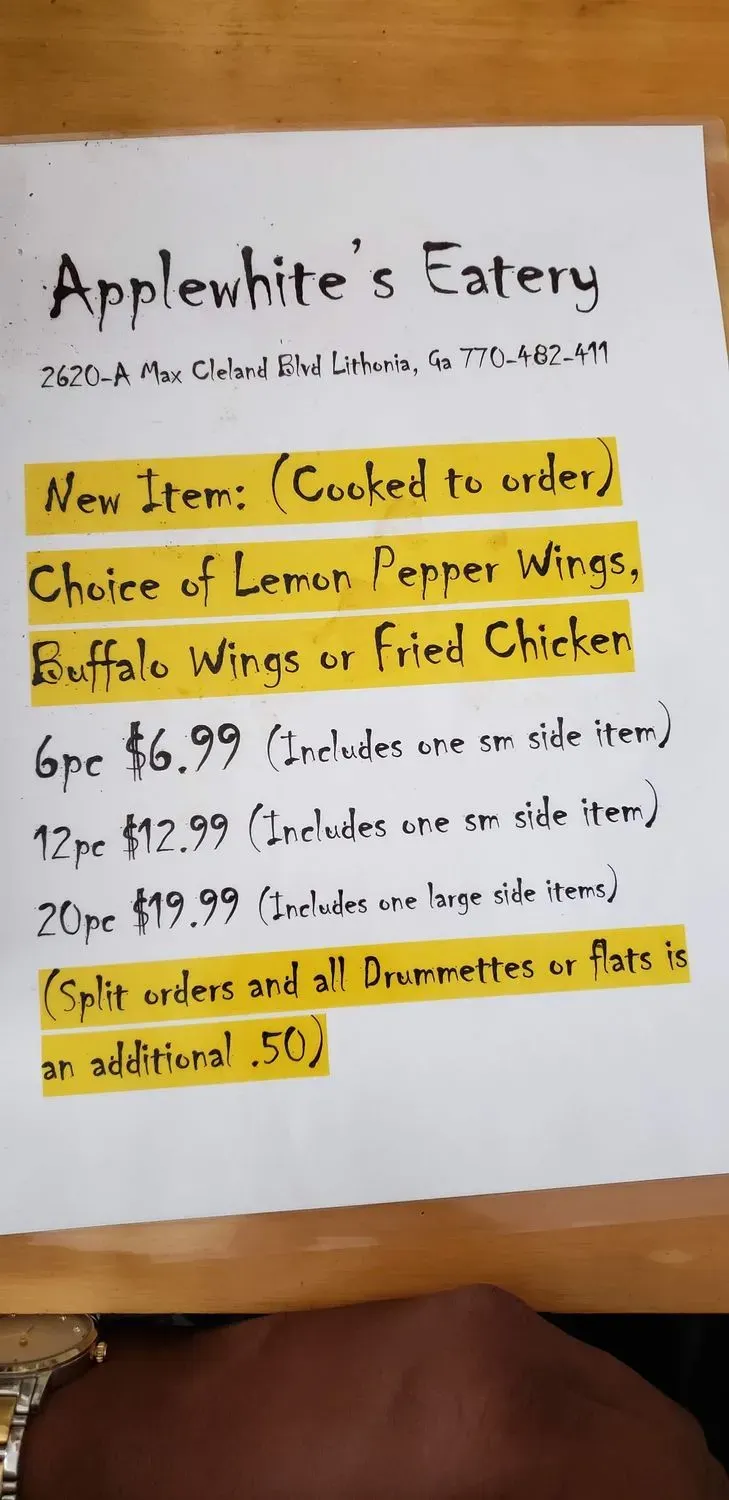 Applewhite's Eatery
2620-A Max Cleland Blvd Lithonia, Ga 770-482-411
New Item: (Cooked to order)
Choice of Lemon Pepper Wings,
Buffalo Wings or Fried Chicken
6pc $6.99 (Includes one sm side item)
12pc $12.99 (Includes one sm side item)
20pc $19.99 (Includes one large side items)
(Split orders and all Drummettes or flats is
an additional .50)